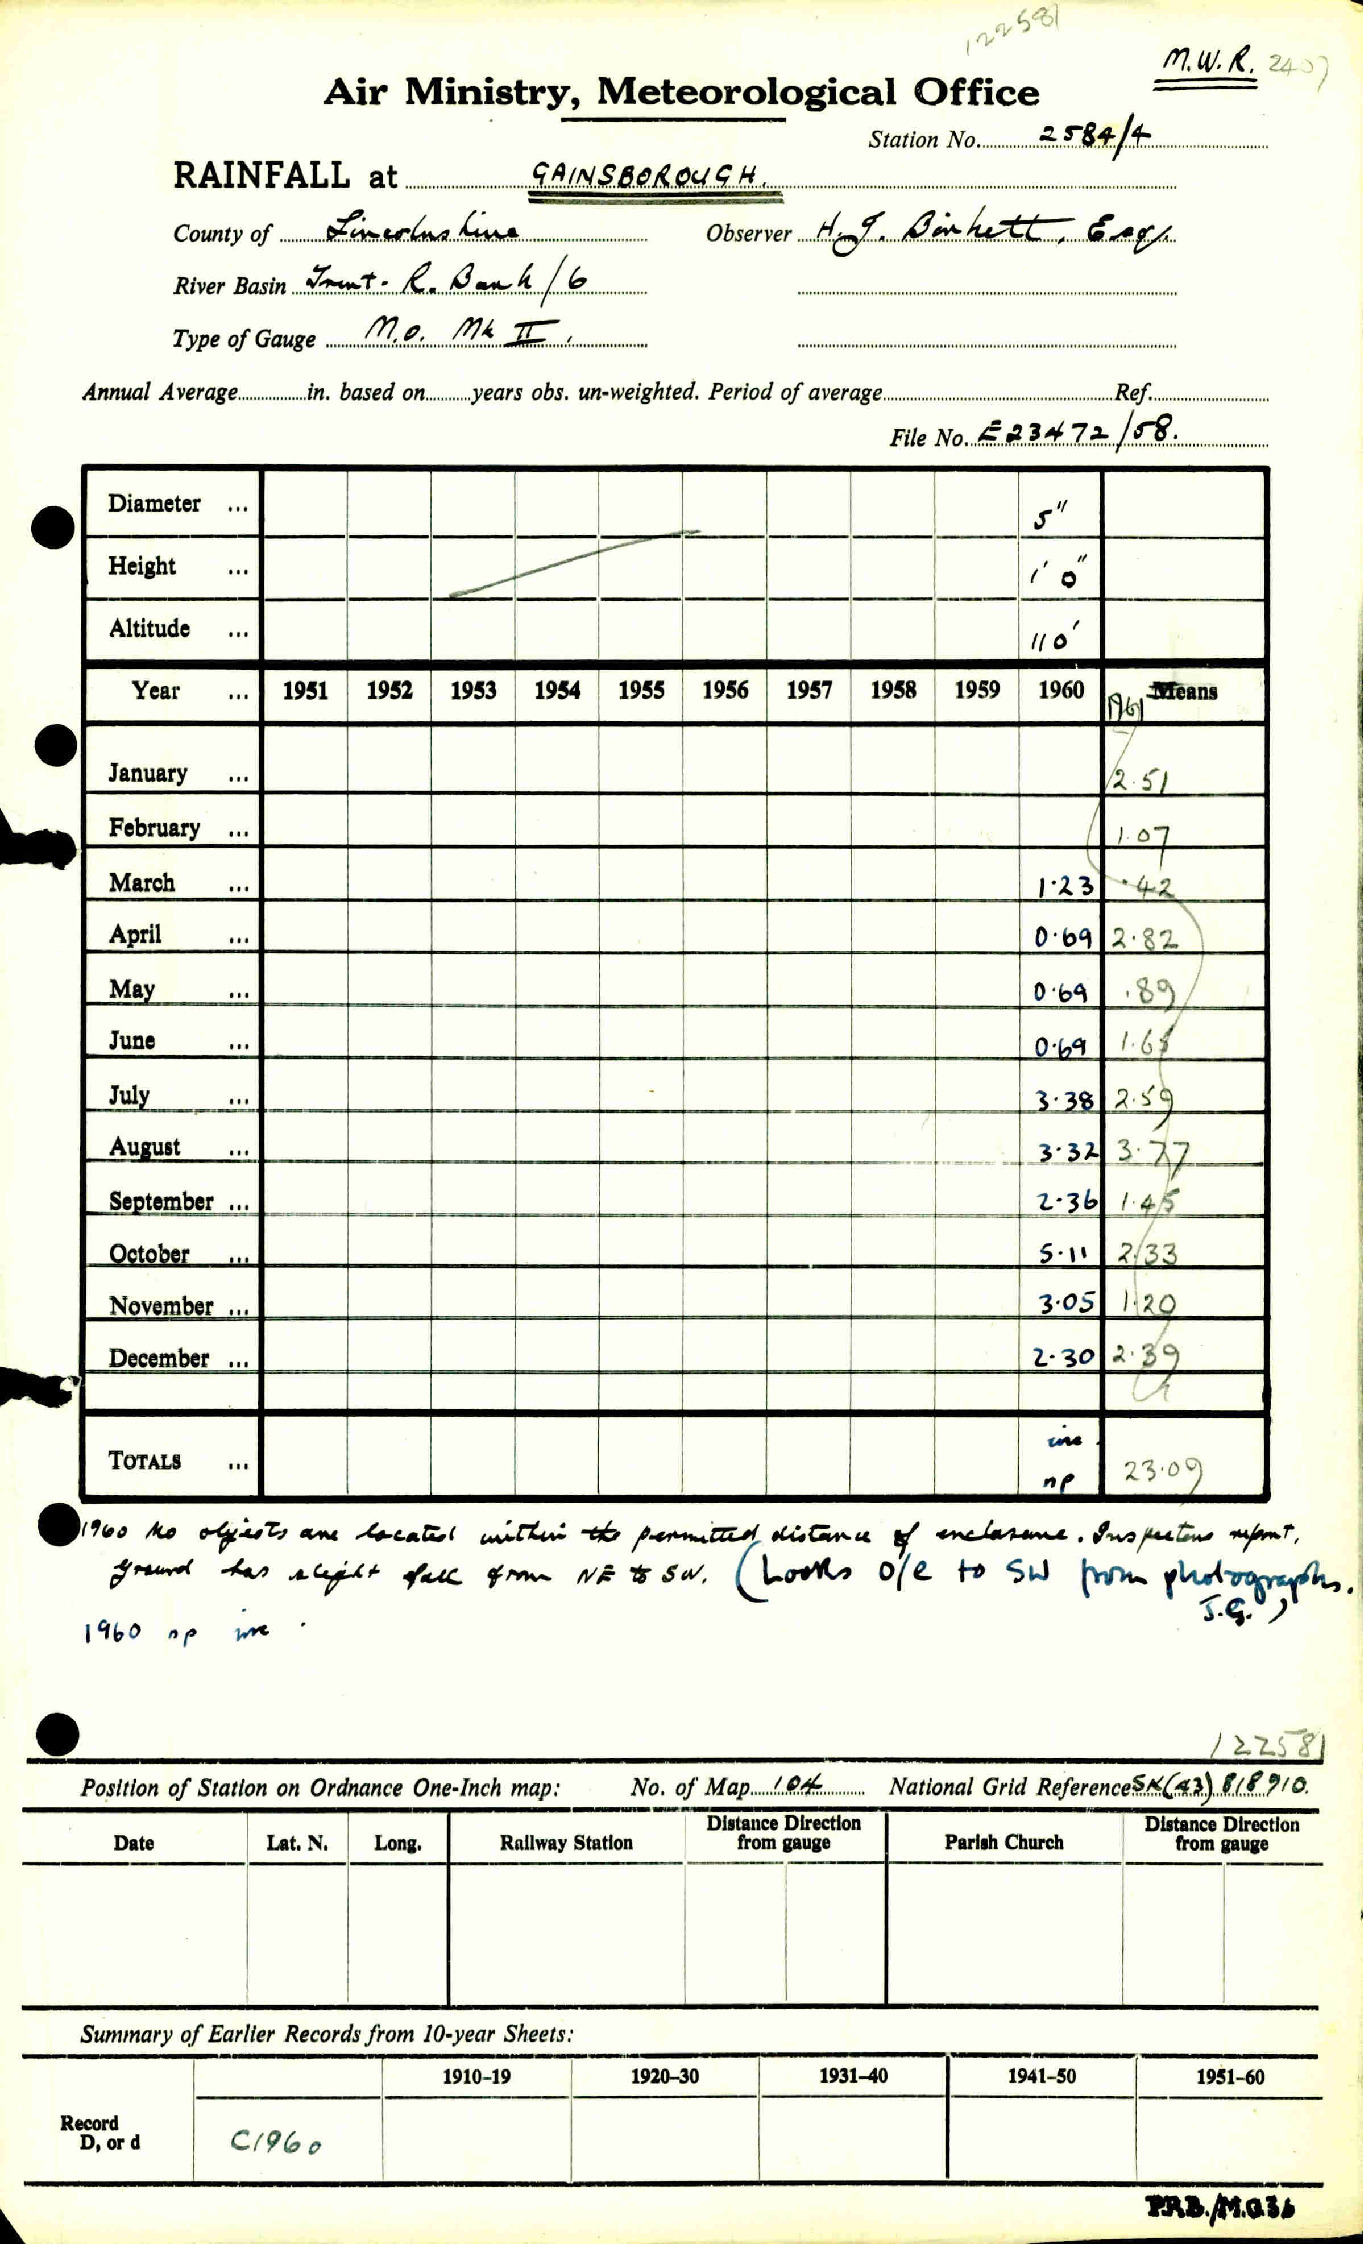 122581
M.W.R. 2407
Air Ministry, Meteorological Office
Station No. 2584/4
RAINFALL at GAINSBOROUGH.
County of Lincolnshire Observer H. J. Birkett, Esq.
River Basin Trent. R. Bank/6
Type of Gauge M.O. Mk II.
Annual Average in. based on years obs. un-weighted. Period of average Ref.
File No. E23472/58.
Diameter ... 5"
Height ... 1' 0"
Altitude ... 110'
Year ... 1951 1952 1953 1954 1955 1956 1957 1958 1959 1960 1961 Means
January ... 2.51
February ... 1.07
March ... 1.23 .42
April ... 0.69 2.82
May ... 0.69 .89
June ... 0.69 1.65
July ... 3.38 2.59
August ... 3.32 3.77
September ... 2.36 1.45
October ... 5.11 2.33
November ... 3.05 1.20
December ... 2.30 2.39
TOTALS ... inc np 23.09
1960 No objects are located within the permitted distance of enclosure. Inspectors report,
ground has slight fall from NE to SW. (Looks o/e to SW from photographs.
J.G.)
1960 np inc
122581
Position of Station on Ordnance One-Inch map: No. of Map 104 National Grid Reference SK(43) 818910.
Date Lat. N. Long. Railway Station Distance Direction from gauge Parish Church Distance Direction from gauge
Summary of Earlier Records from 10-year Sheets:
1910-19 1920-30 1931-40 1941-50 1951-60
Record
D, or d C1960
P.R.B./M.O.36